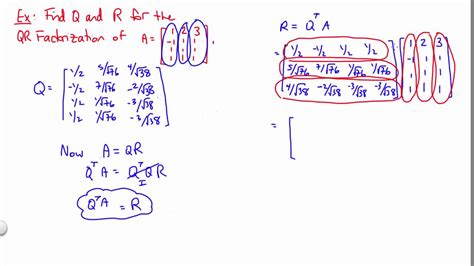 Ex: Find Q and R for the
QR Factorization of A = [ 1 2 3
-1 1 1
1 1 1
1 1 1 ]
Q = [ 1/2 5/√76 4/√38
-1/2 7/√76 -2/√38
1/2 1/√76 -3/√38
1/2 1/√76 -3/√38 ]
Now A = QR
QᵀA = QᵀQR
I
QᵀA = R
R = QᵀA
= [ 1/2 -1/2 1/2 1/2 ] [ 1 2 3
5/√76 7/√76 1/√76 1/√76 -1 1 1
4/√38 -2/√38 -3/√38 -3/√38 1 1 1
1 1 1 ]
= [